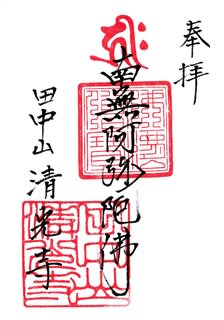 奉拝
南無阿弥陀佛
田中山 清光寺